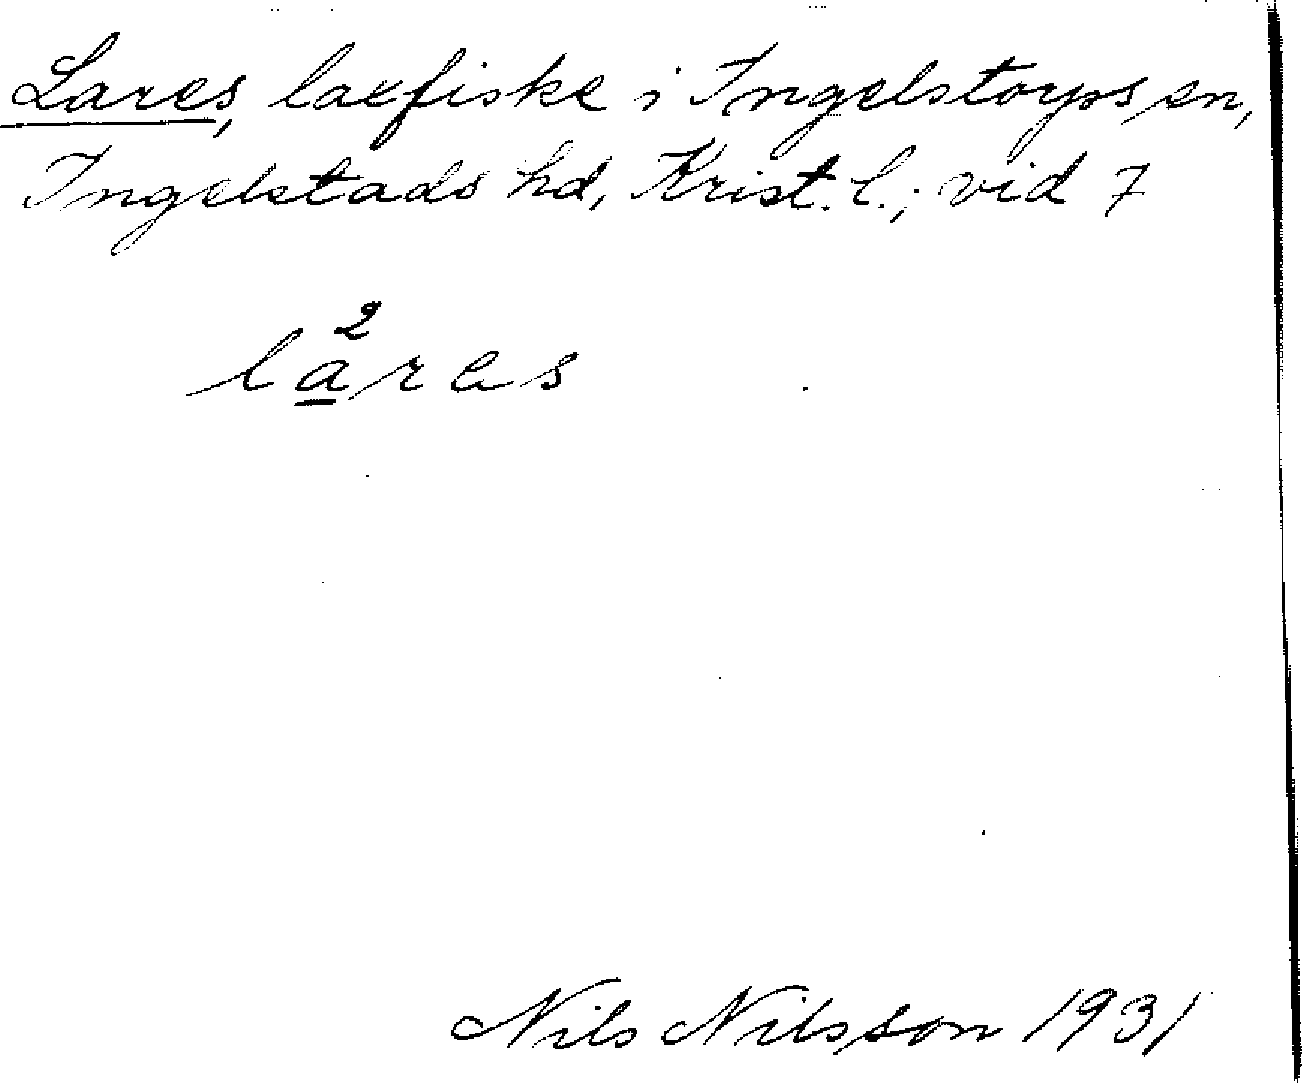 Lares, laxfiske i Ingelstorps sn,
Ingelstads hd, Krist. l.; vid 7
2
lares
Nils Nilsson 1931